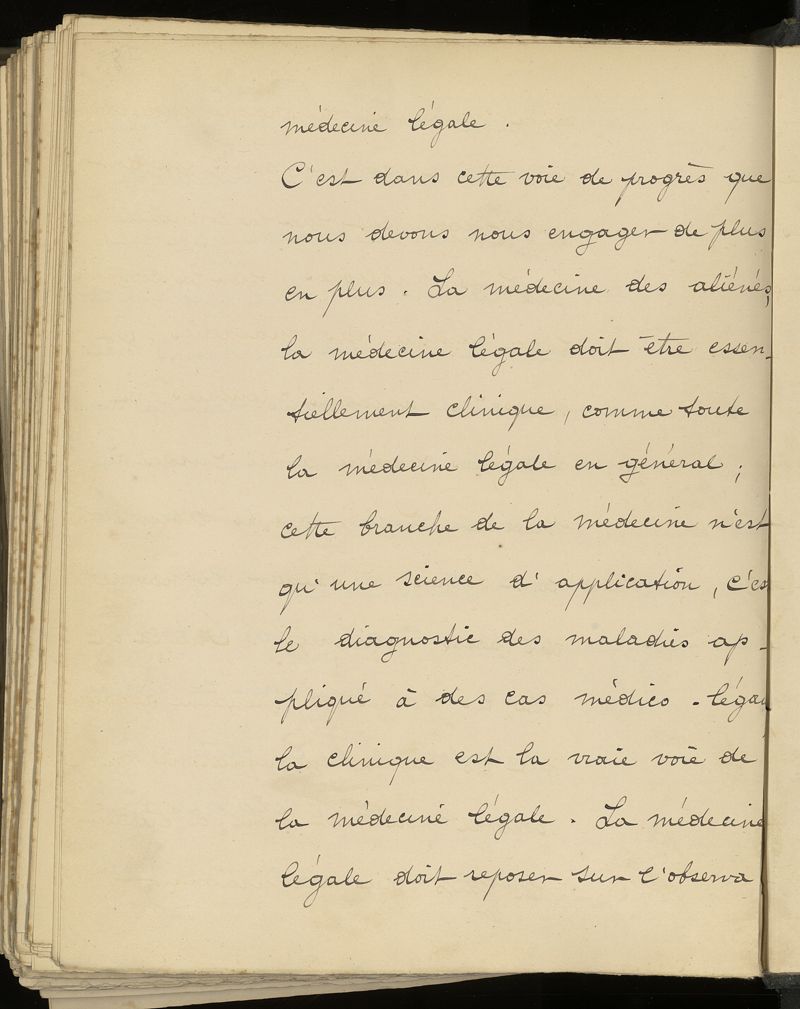 médecine légale .
C'est dans cette voie de progrès que
nous devons nous engager de plus
en plus . La médecine des aliénés,
la médecine légale doit être essen-
tiellement clinique, comme toute
la médecine légale en général ;
cette branche de la médecine n'est
qu'une science d'application, c'es
le diagnostic des maladies ap-
pliqué à des cas médico-léga
la clinique est la vraie voie de
la médecine légale . La médecine
légale doit reposer sur l'observa